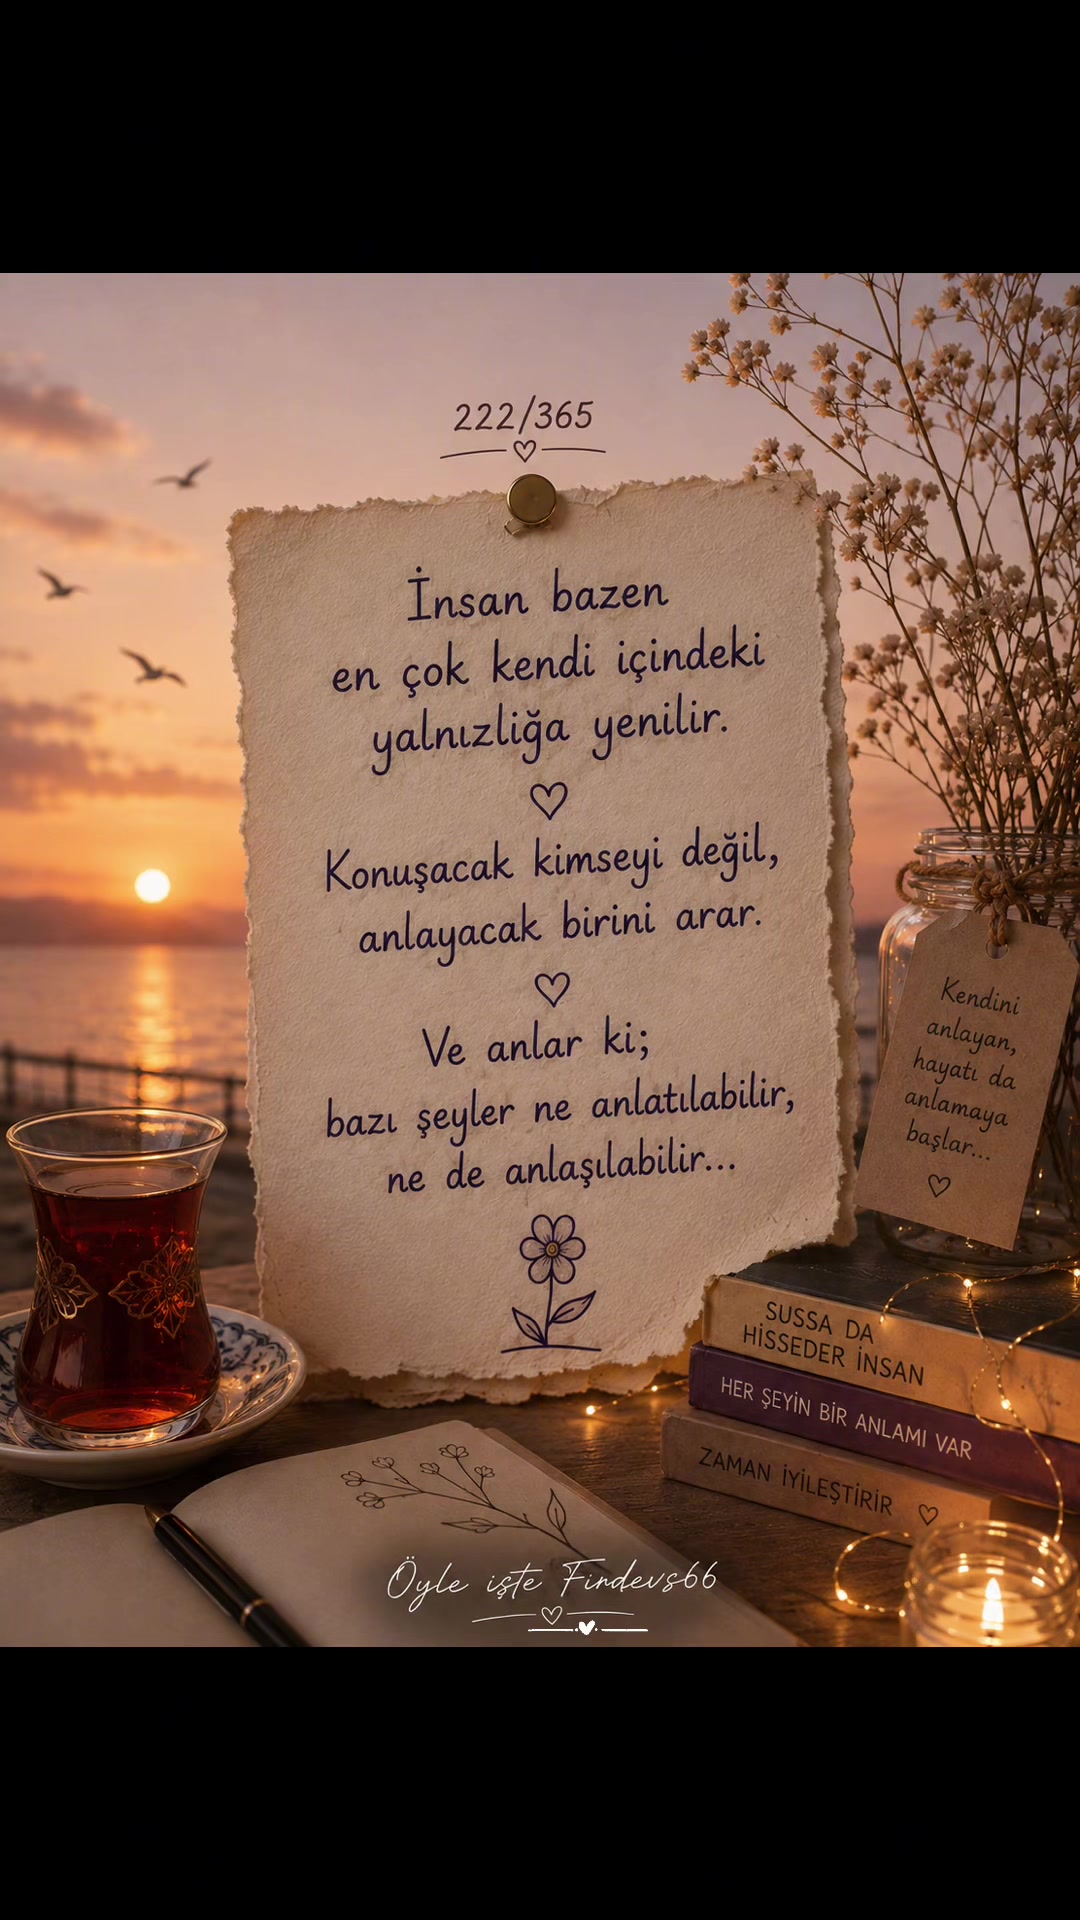 222/365
İnsan bazen
en çok kendi içindeki
yalnızlığa yenilir.
Konuşacak kimseyi değil,
anlayacak birini arar.
Ve anlar ki;
bazı şeyler ne anlatılabilir,
ne de anlaşılabilir...
Kendini
anlayan,
hayatı da
anlamaya
başlar...
SUSSA DA
HİSSEDER İNSAN
HER ŞEYİN BİR ANLAMI VAR
ZAMAN İYİLEŞTİRİR
Öyle işte Findevs66